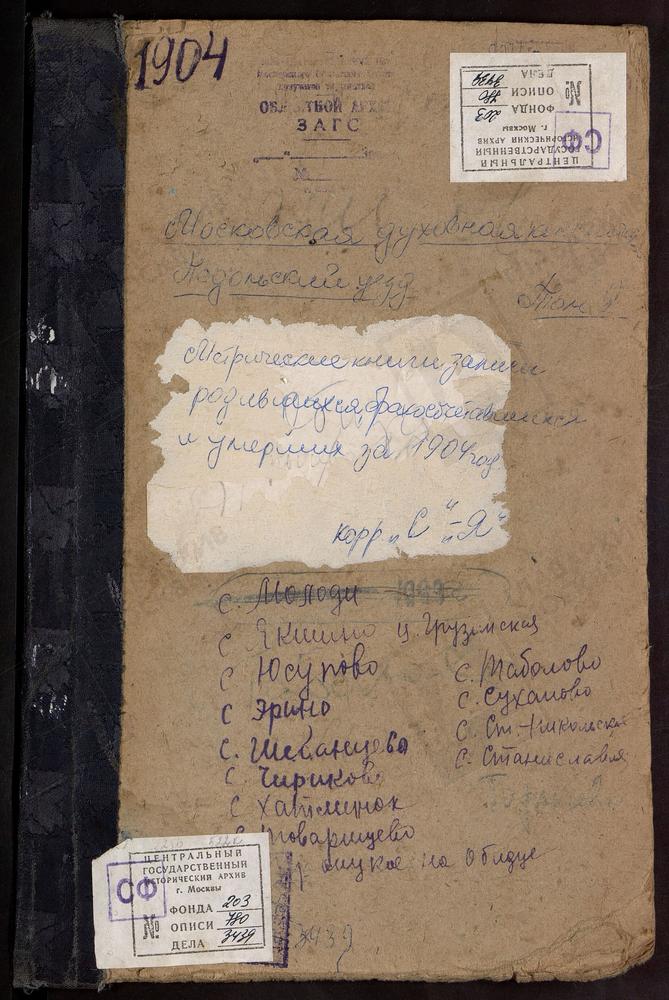 1904
ОБЛАСТНОЙ АРХИВ
ЗАГС
№
ЦЕНТРАЛЬНЫЙ
ГОСУДАРСТВЕННЫЙ
ИСТОРИЧЕСКИЙ АРХИВ
г. Москвы
СФ
№
ФОНДА 203
ОПИСИ 780
ДЕЛА 3439
Московская духовная
Подольский уезд
Том
Метрические книги записи
родившихся, бракосочетавшихся
и умерших за 1904 год
корр. „С"-„Я"
с. Молоди
с Якшино ц. Грузинская
с Юсупово
с Ерино
с. Шебанцево
с Чириково
с Хатминок
товарищево
на Обидце
с. Таболово
с. Суханово
с Ст.-Никольск
с. Станиславля
ЦЕНТРАЛЬНЫЙ
ГОСУДАРСТВЕННЫЙ
ИСТОРИЧЕСКИЙ АРХИВ
г. Москвы
СФ
№
ФОНДА 203
ОПИСИ 780
ДЕЛА 3439
3439